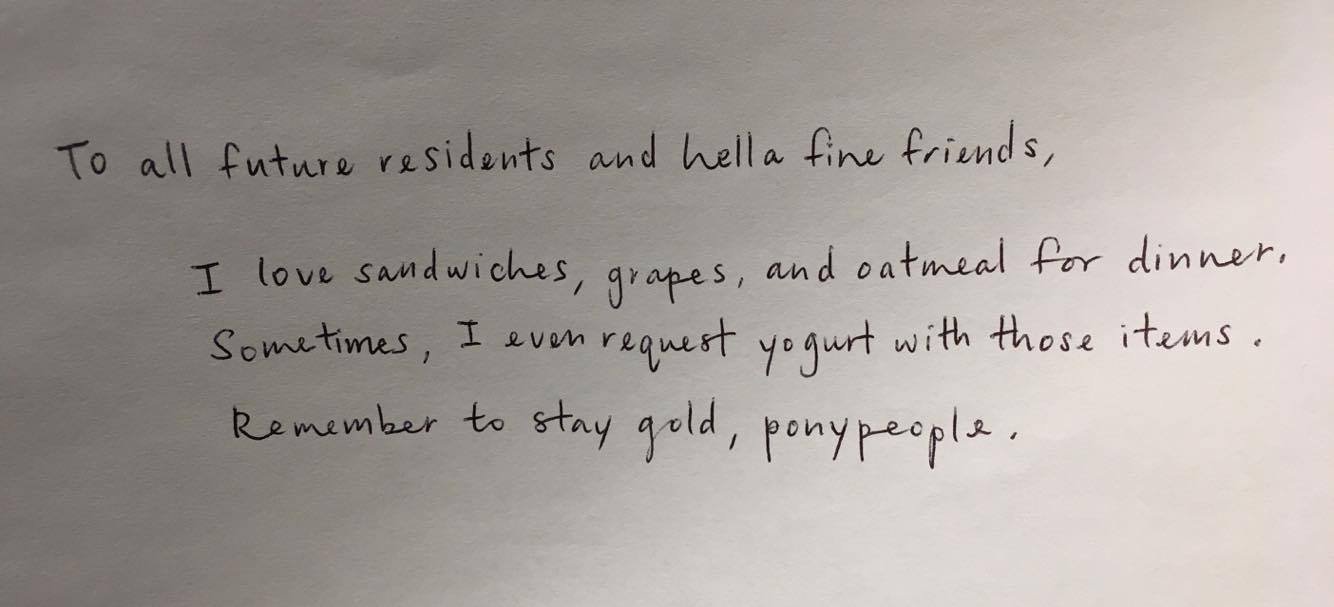 To all future residents and hella fine friends,
I love sandwiches, grapes, and oatmeal for dinner.
Sometimes, I even request yogurt with those items.
Remember to stay gold, ponypeople.